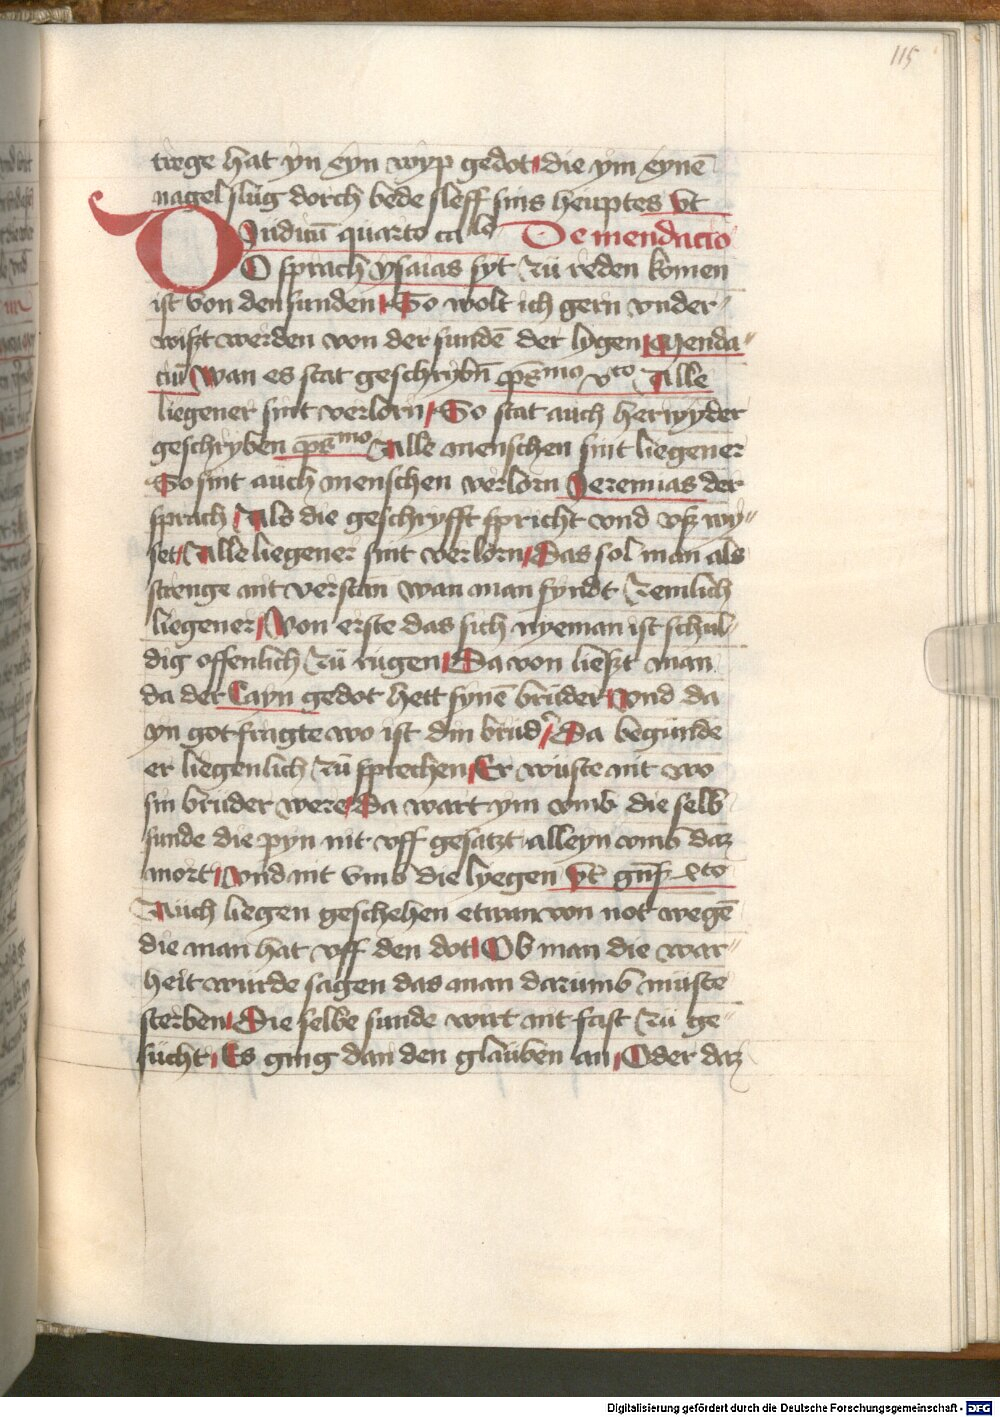 115
trege hat yn eyn wyp gedot die ym eynē
nagel slůg dorch bede sleff sins heuptes vt
Judicū quarto ca ld De mendacio
DO sprach ysaias syt zů reden komen
ist von den sunden So wolt ich gern vnder
wiszt werden von der sundē der lygen Menda"
ciū wan es stat geschrybn̄ ps̄mo vto Alle
liegener sint verlorn So stat auch herwyder
geschryben ps̄mo Alle menschen sint liegener
So sint auch menschen verlorn Jeremias der
sprach Als die geschryfft spricht vnd vsz wy"
set Alle liegener sint verlorn Das sol man als
strenge nit verstan wan man fyndt zemlich
liegener Von erste das sich nyeman ist schul
dig offenlich zů rugen Da von lieszt man
da der Cayn gedot hett synē brůder vnd da
yn got fragte wo ist din brůd' Da begunde
er liegenlich zů sprechen Er wuste nit wo
sin bruder were Da wart ym vmb die selb
sunde die pyn nit vff gesatzt alleyn vmb daz
mort vnd nit vmb die lyegen vt gn̄s xto
Auch liegen geschehen etwan von not wegē
die man hat vff den dot Ob man die war"
heit wurde sagen das man darumb můste
sterben Die selbe sunde wirt nit fast zů ge"
sücht Es ging dan den glauben an Oder daz
Digitalisierung gefördert durch die Deutsche Forschungsgemeinschaft - DFG